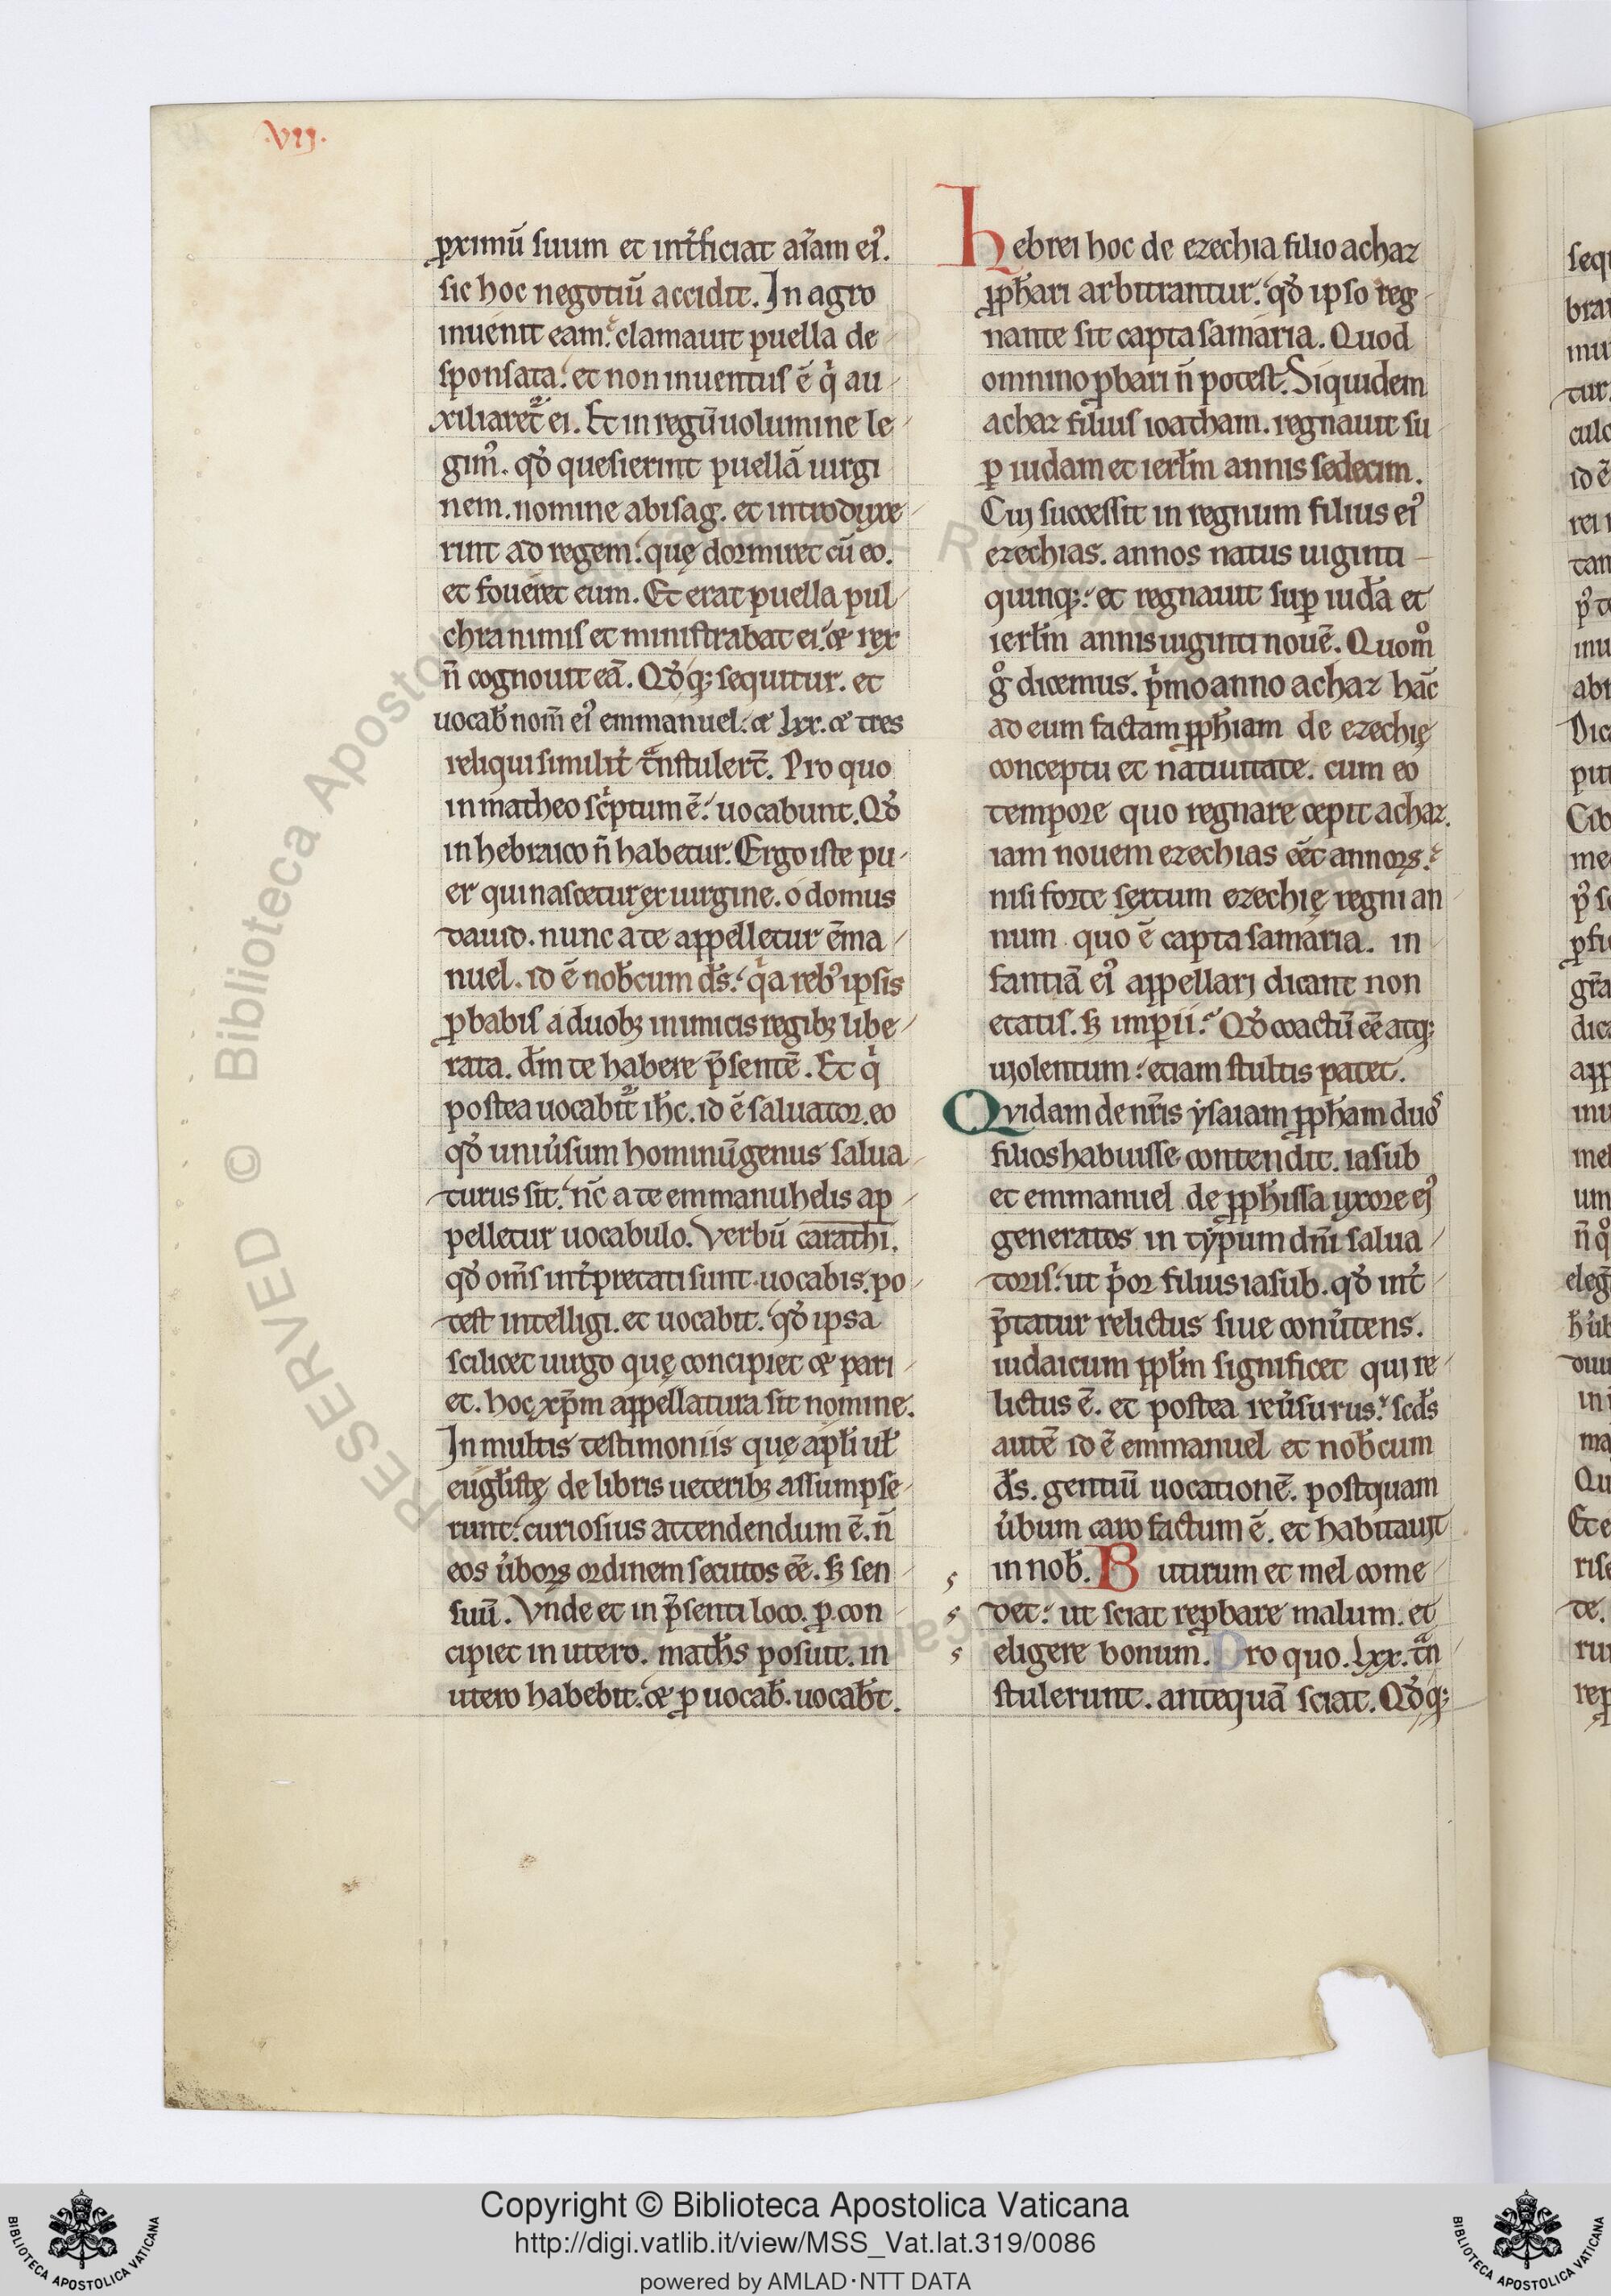 .VIJ.
ꝓximū suum et int̓ficiat aīam ei᾿.
sic hoc negotiū accidit. In agro
inuenit eam. clamauit puella de
sponsata. et non inuentus ē qͥ au
xiliaret᷑ ei. Et in regū uolumine le
gim᾿. qď quesierint puellā uirgi
nem. nomine abisag. et introduxe
rint ad regem. quę dormiret cū eo.
et foueret eum. Et erat puella pul
chra nimis et ministrabat ei. & rex
n̄ cognouit eā. Qďq; sequitur. et
uocab̄ nom̄ ei᾿ emmanuel. & lxx. & tres
reliqui similit̓ tͣnstulert̄. Pro quo
in matheo scͥptum ē. uocabunt. Qď
in hebraico n̄ habetur. Ergo iste pu
er qui nascetur ex uirgine. o domus
dauid. nunc a te appelletur ēma
nuel. id ē nob̄cum d̄s. qͥa reb᾿ ipsis
ꝓbabis a duob; inimicis regib; libe
rata. dm̄ te habere p̄sentē. Et qͥ
postea uocabit᷑ ih̄c. id ē saluator. eo
qď uniu̓sum hominū genus salua
turus sit. nc̄ a te emmanuhelis ap
pelletur uocabulo. Verbū carathi.
qď om̄s int̓pretati sunt uocabis. po
test intelligi. et uocabit. qď ipsa
scilicet uirgo quę concipiet & pari
et. hoc xp̄m appellatura sit nomine.
In multis testimoniis quę apl̄i ul̄
eugl̄istę de libris ueterib; assumpse
runt. curiosius attendendum ē. n̄
eos u̓boꝝ ordinem secutos ēē. sꝫ sen
suū. Vnde et in p̄senti loco. ꝓ con
cipiet in utero. math̄s posuit. in
utero habebit. & ꝓ uocab̄. uocab̄t.
Hebrei hoc de ezechia filio achaz
ꝓph̄ari arbitrantur. qď ipso reg
nante sit capta samaria. Quod
omnino ꝓbari n̄ potest. Siquidem
achaz filius ioatham. regnauit su
ꝑ iudam et ierl̄m annis sedecim.
Cui successit in regnum filius ei᾿
ezechias. annos natus uiginti
quinq;. et regnauit suꝑ iudā et
ierl̄m annis uiginti nouē. Quomͦ
gͦ dicemus. pͥmo anno achaz hāc
ad eum factam ꝓph̄iam de ezechię
conceptu et natiuitate. cum eo
tempore quo regnare cepit achaz.
iam nouem ezechias eēt annoꝝ.
nisi forte sextum ezechię regni an
num quo ē capta samaria. in
fantiā ei᾿ appellari dicant non
etatis. sꝫ imꝑii. Qď coactū ēē atq;
uiolentum. etiam stultis patet.
Qvidam de nr̄is ysaiam ꝓph̄am duos
filios habuisse contendit. iasub
et emmanuel de ꝓph̄issa uxore ei᾿
generatos in typum dn̄i salua
toris. ut pͥor filius iasub. qď int̓
p̄tatur relictus siue conu̓tens.
iudaicum ppl̄m significet qui re
lictus ē. et postea reu̓surus. scd̄s
autē id ē emmanuel et nob̄cum
d̄s. gentiū uocationē. postquam
u̓bum caro factum ē. et habitauit
in nob̄. Butirum et mel come
det. ut sciat reꝓbare malum. et
eligere bonum. Pro quo. lxx. tͣn
stulerunt. antequā sciat. Qďq;
Copyright © Biblioteca Apostolica Vaticana
http://digi.vatlib.it/view/MSS_Vat.lat.319/0086
powered by AMLAD·NTT DATA
BIBLIOTECA APOSTOLICA VATICANA
BIBLIOTECA APOSTOLICA VATICANA